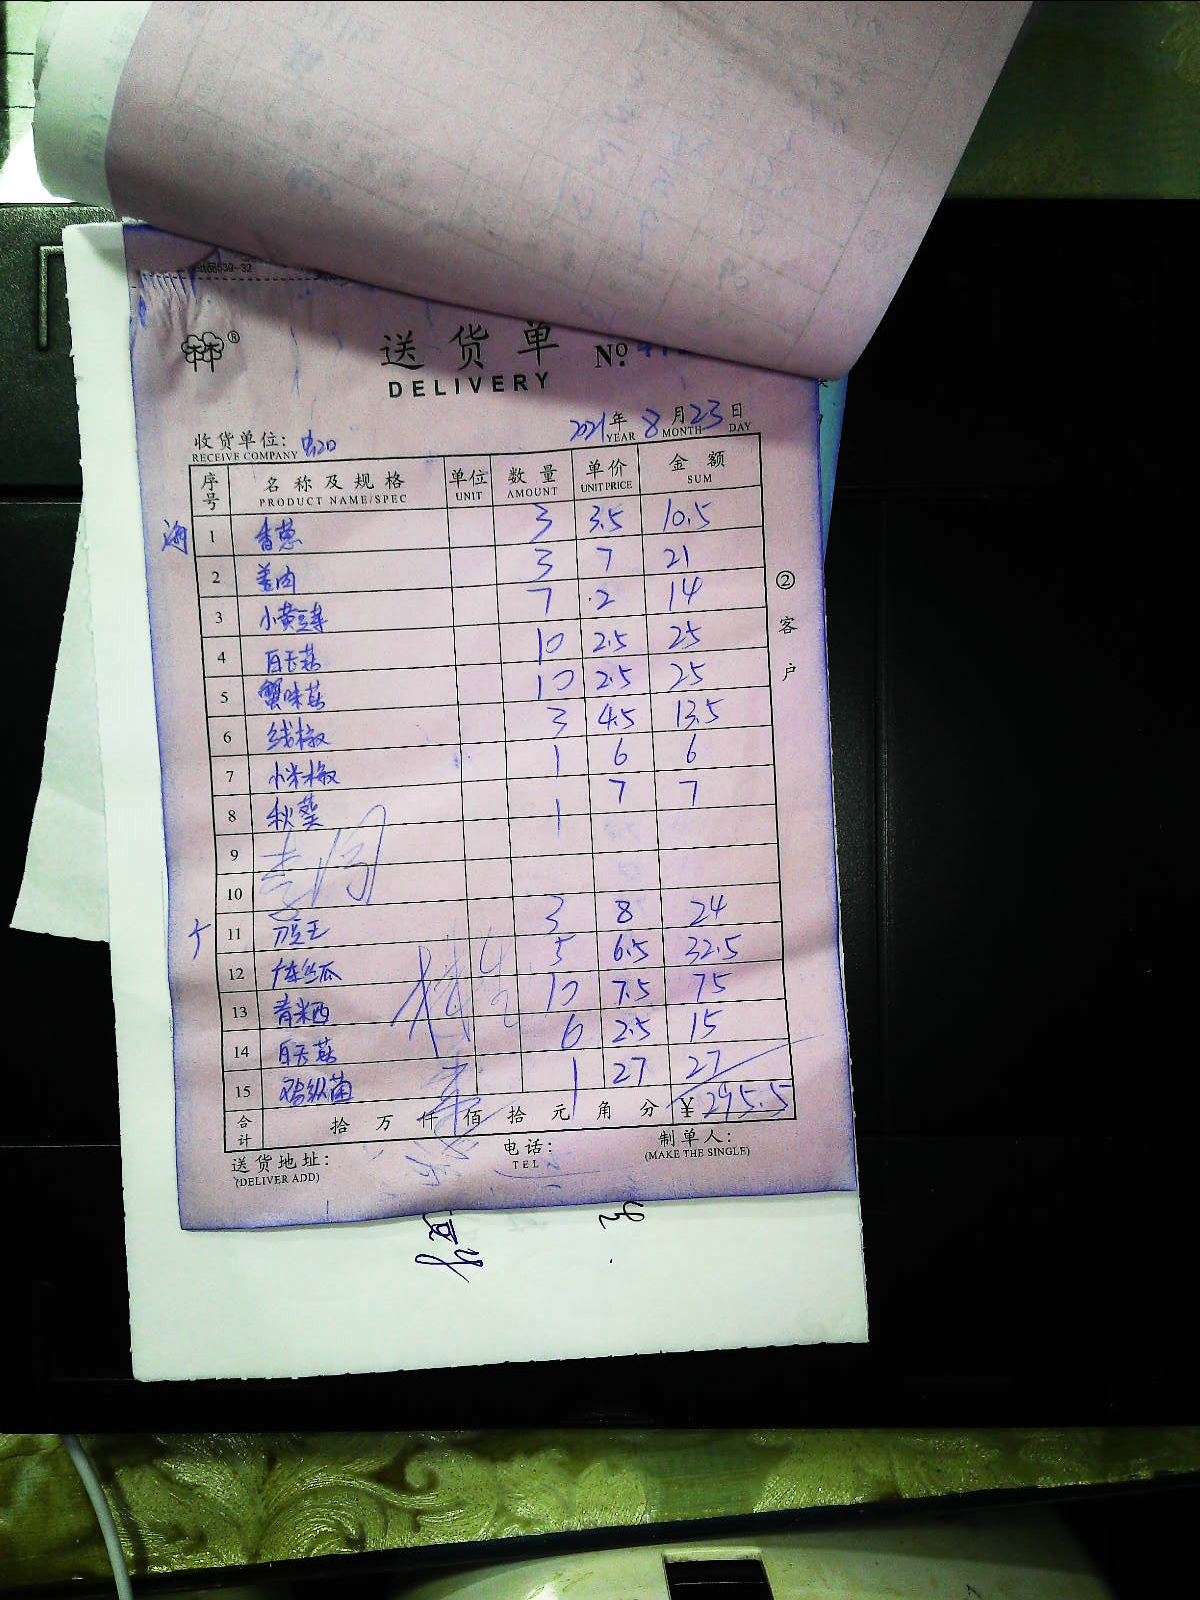 送货单 No.
DELIVERY
2021年 8月23日
YEAR MONTH DAY
收货单位:
RECEIVE COMPANY
序号 名称及规格 单位 数量 单价 金额
PRODUCT NAME/SPEC UNIT AMOUNT UNIT PRICE SUM
海 1 香葱 3 3.5 10.5
2 姜肉 3 7 21
3 小黄豆芽 7 2 14
4 白玉菇 10 2.5 25
5 蟹味菇 10 2.5 25
6 线椒 3 4.5 13.5
7 小米椒 1 6 6
8 秋葵 1 7 7
9
10
11 豆王 3 8 24
12 丝瓜 5 6.5 32.5
13 青米西 10 7.5 75
14 白玉菇 6 2.5 15
15 鸡枞菌 1 27 27
合计 拾 万 仟 佰 拾 元 角 分 ¥ 295.5
送货地址: 电话: 制单人:
(DELIVER ADD) TEL (MAKE THE SINGLE)
② 客户